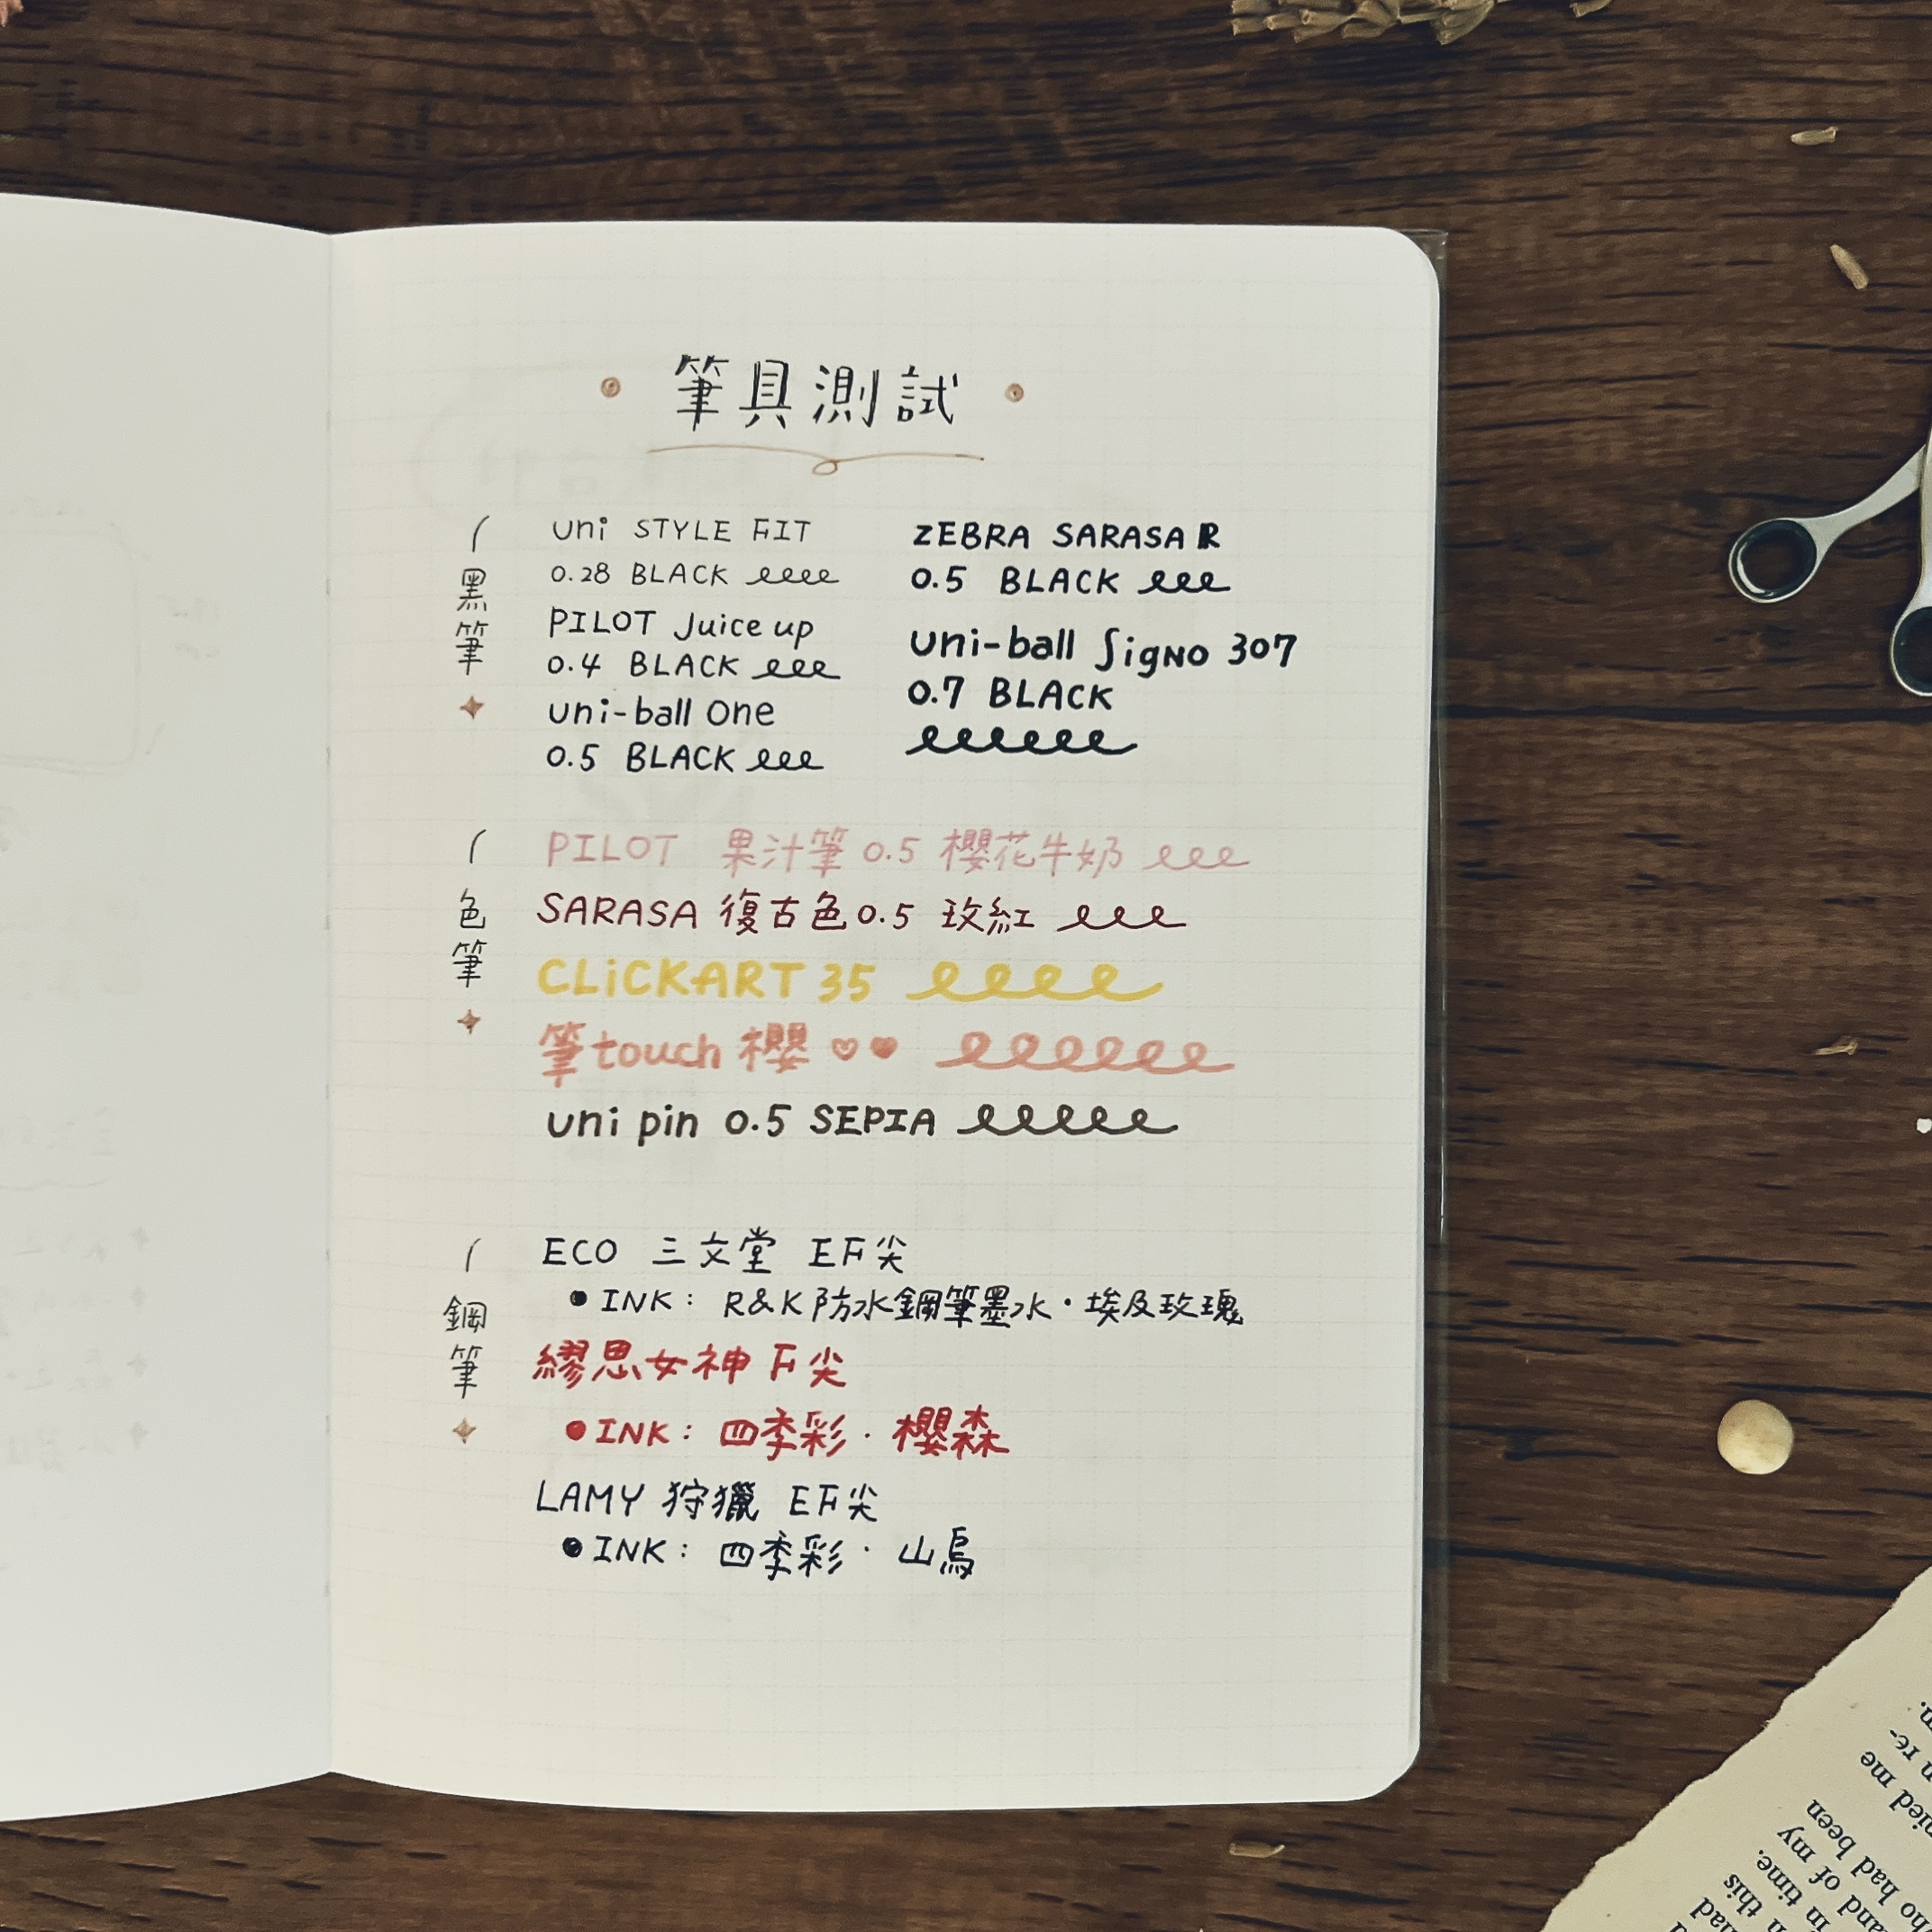 筆具測試
黑筆
uni STYLE FIT
0.28 BLACK
PILOT Juice up
0.4 BLACK
uni-ball one
0.5 BLACK
ZEBRA SARASA R
0.5 BLACK
uni-ball SigNO 307
0.7 BLACK
色筆
PILOT 果汁筆 0.5 櫻花牛奶
SARASA 復古色 0.5 玫紅
CLiCKART 35
筆touch 櫻
uni pin 0.5 SEPIA
鋼筆
ECO 三文堂 EF尖
INK: R&K 防水鋼筆墨水·埃及玫瑰
繆思女神 F尖
INK: 四季彩·櫻森
LAMY 狩獵 EF尖
INK: 四季彩·山鳥
n re-
nied me
o had been
and of my
in time.
n this
had